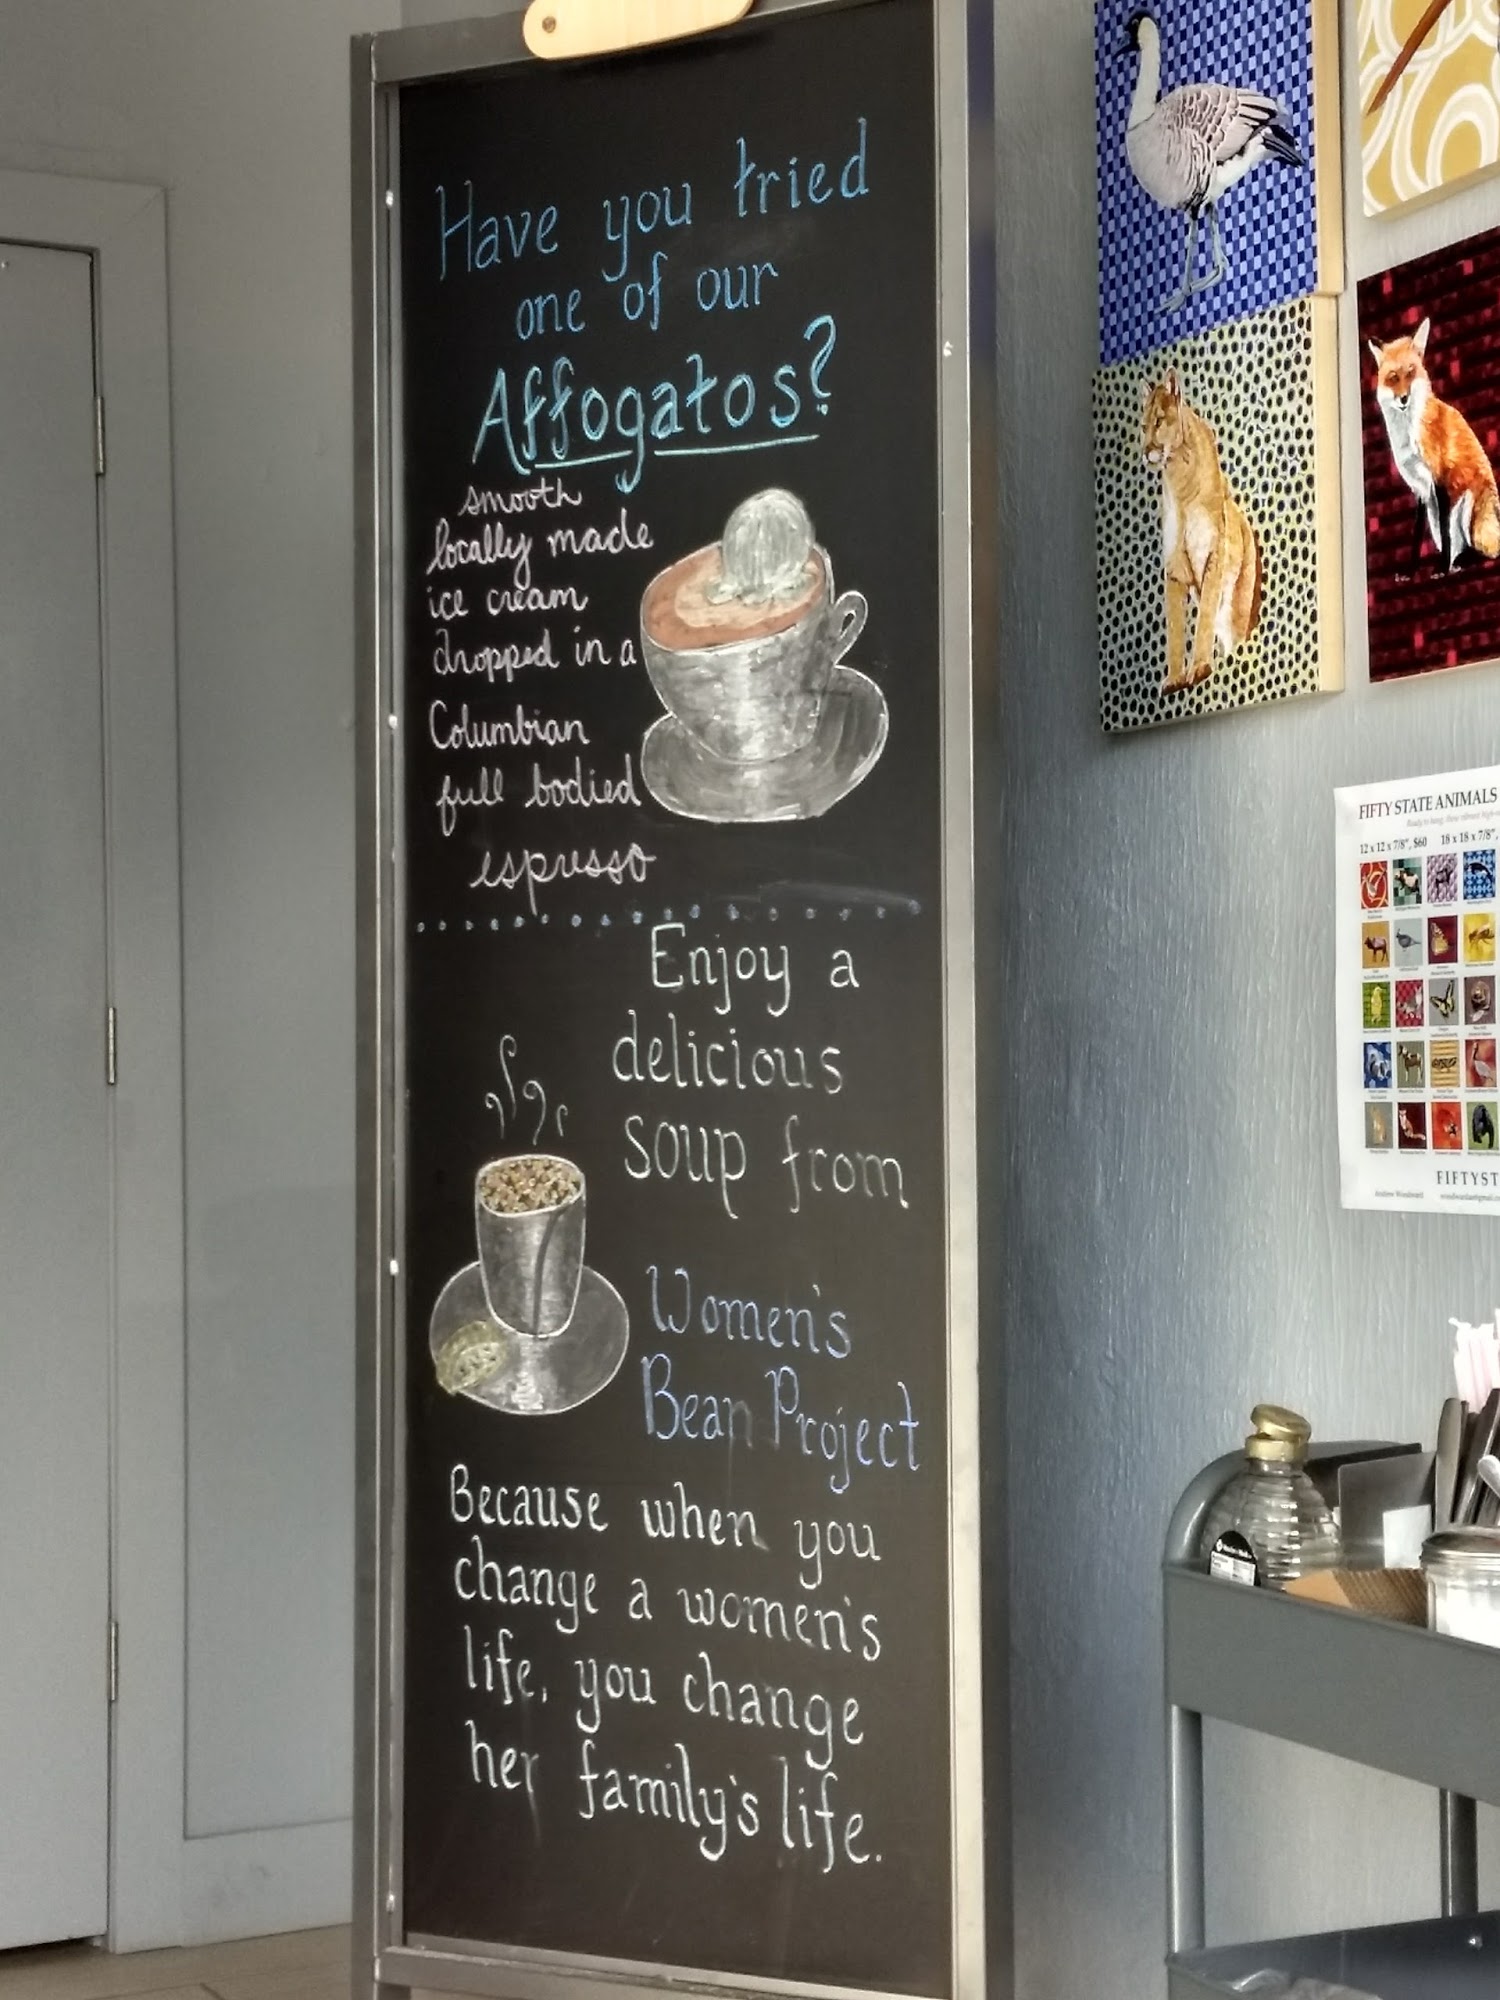 Have you tried
one of our
Affogatos?
smooth
locally made
ice cream
dropped in a
Columbian
full bodied
espresso
Enjoy a
delicious
soup from
Women's
Bean Project
Because when you
change a women's
life, you change
her family's life.
FIFTY STATE ANIMALS
12 x 12 x 7/8", $60 18 x 18 x 7/8",
FIFTYST
Andrew Woodward